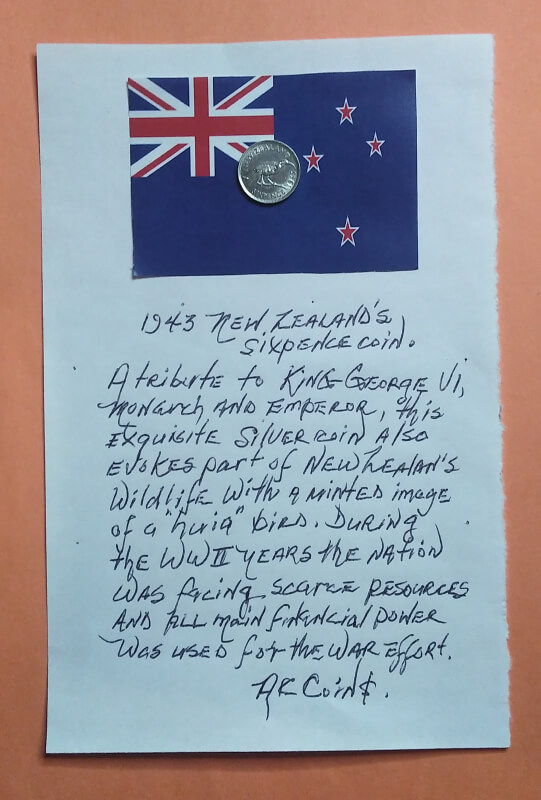 NEW ZEALAND
SIXPENCE
1943 NEW ZEALAND'S
SIXPENCE COIN.
A tribute to KING GEORGE VI,
Monarch AND EMPEROR, this
EXQUISITE SILVER COIN Also
EVOKES part of NEW ZEALAN'S
Wildlife With A MINTED image
of a "huia" bird. DURING
the WWII YEARS the NATION
WAS facing scarce RESOURCES
AND ALL main financial POWER
Was used for the WAR Effort.
AR COIN$.